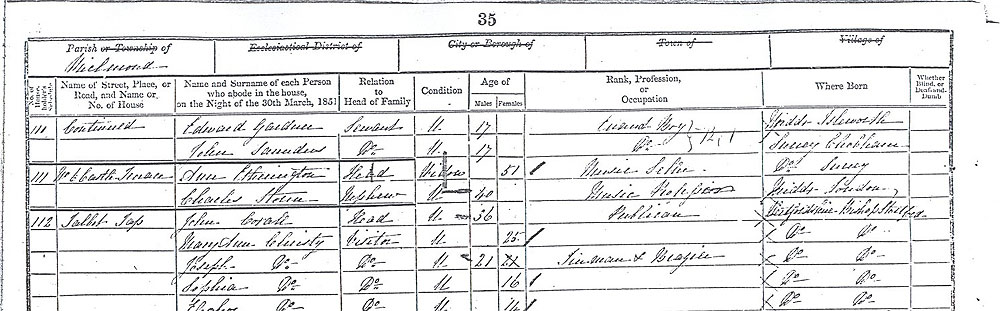 35
Parish or Township of
Richmond
Ecclesiastical District of
City or Borough of
Town of
Village of
No. of House-holder's Schedule
Name of Street, Place, or Road, and Name or No. of House
Name and Surname of each Person who abode in the house, on the Night of the 30th March, 1851
Relation to Head of Family
Condition
Age of
Males
Females
Rank, Profession, or Occupation
Where Born
Whether Blind, or Deaf-and-Dumb
111 Continued Edward Gardner Servant U 17 Errand Boy Middx Isleworth
John Saunders Do U 17 Do Surrey Chobham
111 No 6 Castle Terrace Ann Etherington Head Widow 51 Music Seller Do Surrey
Charles Nephew U 40 Music Professor Middx London
112 Talbot Tap John Head U 36 Publican Hertfordshire Bishop Stortford
Mary Ann Christy Visitor U 25 Do Do
Joseph Do Do U 21 21 Tinman & Do Do
Sophia Do Do U 16 Do Do
Do Do U 14 Do Do